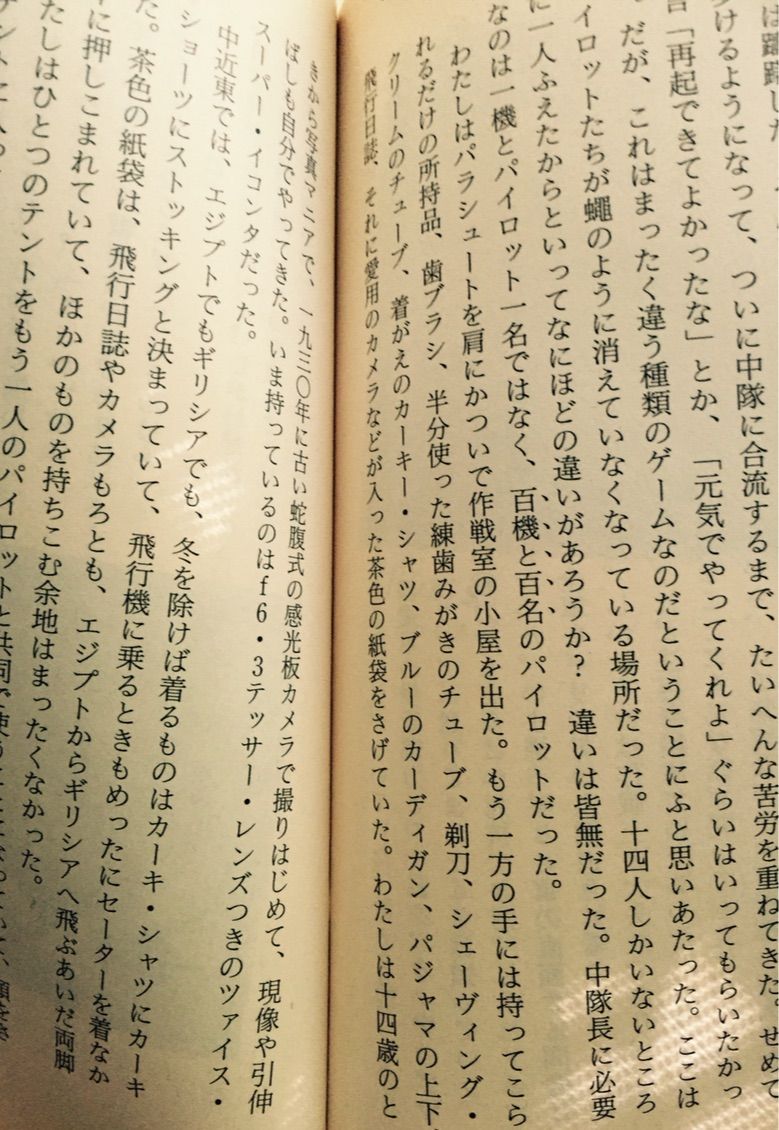 は躊躇した
けるようになって、ついに中隊に合流するまで、たいへんな苦労を重ねてきた。せめて
「再起できてよかったな」とか、「元気でやってくれよ」ぐらいはいってもらいたかっ
だが、これはまったく違う種類のゲームなのだということにふと思いあたった。ここは
イロットたちが蠅のように消えていなくなっている場所だった。十四人しかいないところ
に一人ふえたからといってなにほどの違いがあろうか？　違いは皆無だった。中隊長に必要
なのは一機とパイロット一名ではなく、百機と百名のパイロットだった。
わたしはパラシュートを肩にかついで作戦室の小屋を出た。もう一方の手には持ってこら
れるだけの所持品、歯ブラシ、半分使った練歯みがきのチューブ、剃刀、シェーヴィング・
クリームのチューブ、着がえのカーキー・シャツ、ブルーのカーディガン、パジャマの上下、
飛行日誌、それに愛用のカメラなどが入った茶色の紙袋をさげていた。わたしは十四歳のと
きから写真マニアで、一九三〇年に古い蛇腹式の感光板カメラで撮りはじめて、現像や引伸
ばしも自分でやってきた。いま持っているのはｆ６・３テッサー・レンズつきのツァイス・
スーパー・イコンタだった。
中近東では、エジプトでもギリシアでも、冬を除けば着るものはカーキ・シャツにカーキ
ショーツにストッキングと決まっていて、飛行機に乗るときもめったにセーターを着なか
た。茶色の紙袋は、飛行日誌やカメラもろとも、エジプトからギリシアへ飛ぶあいだ両脚
に押しこまれていて、ほかのものを持ちこむ余地はまったくなかった。
たしはひとつのテントをもう一人のパイロットと共同で使うことになっていて、